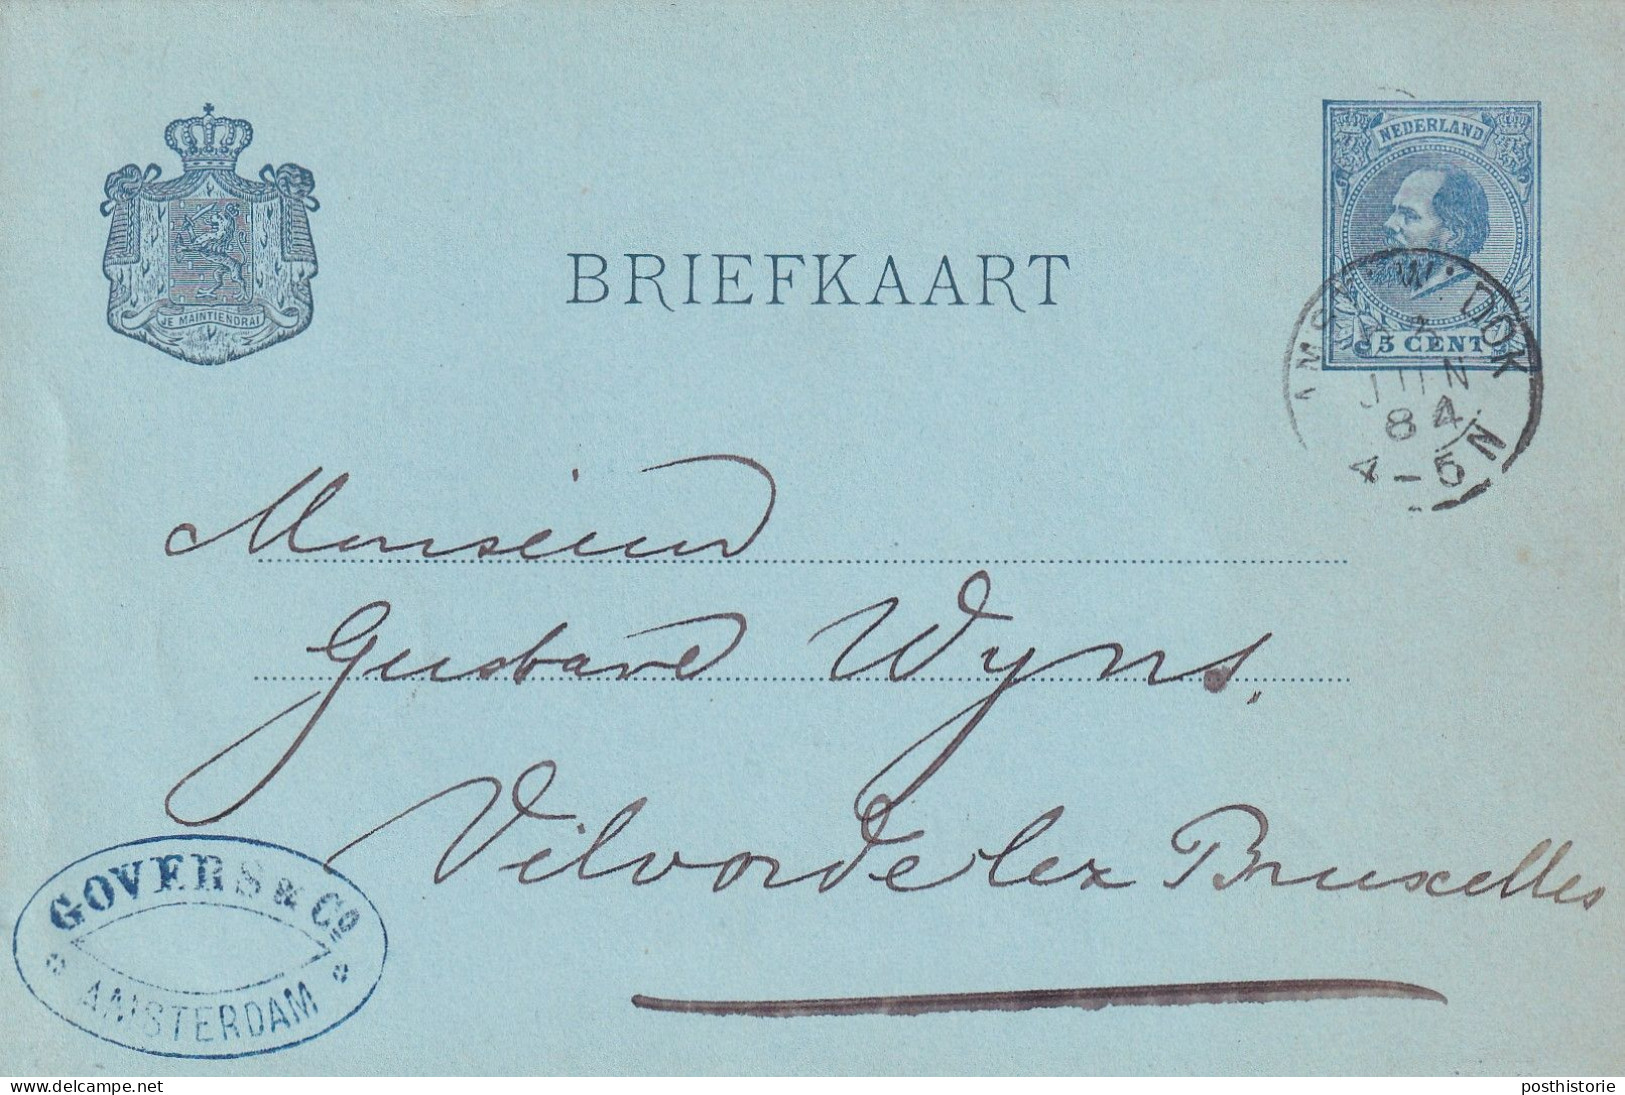 NEDERLAND
BRIEFKAART
JE MAINTIENDRAI
5 CENT
W. DOK
JUN
84
4-5N
Monsieur
Gustave Wyns.
Vilvorde lez Bruxelles
GOVERS & Co.
AMSTERDAM
www.delcampe.net
posthistorie